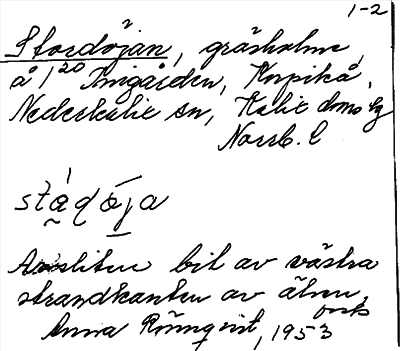 1-2
Stordöjan, gräsholme
å 1/20 Innigården, Korpikå,
Nederkalix sn, Kalix dms lg
Norrb. l
Avsliten bit av västra
strandkanten av älven
Anna Rönnqvist, 1953